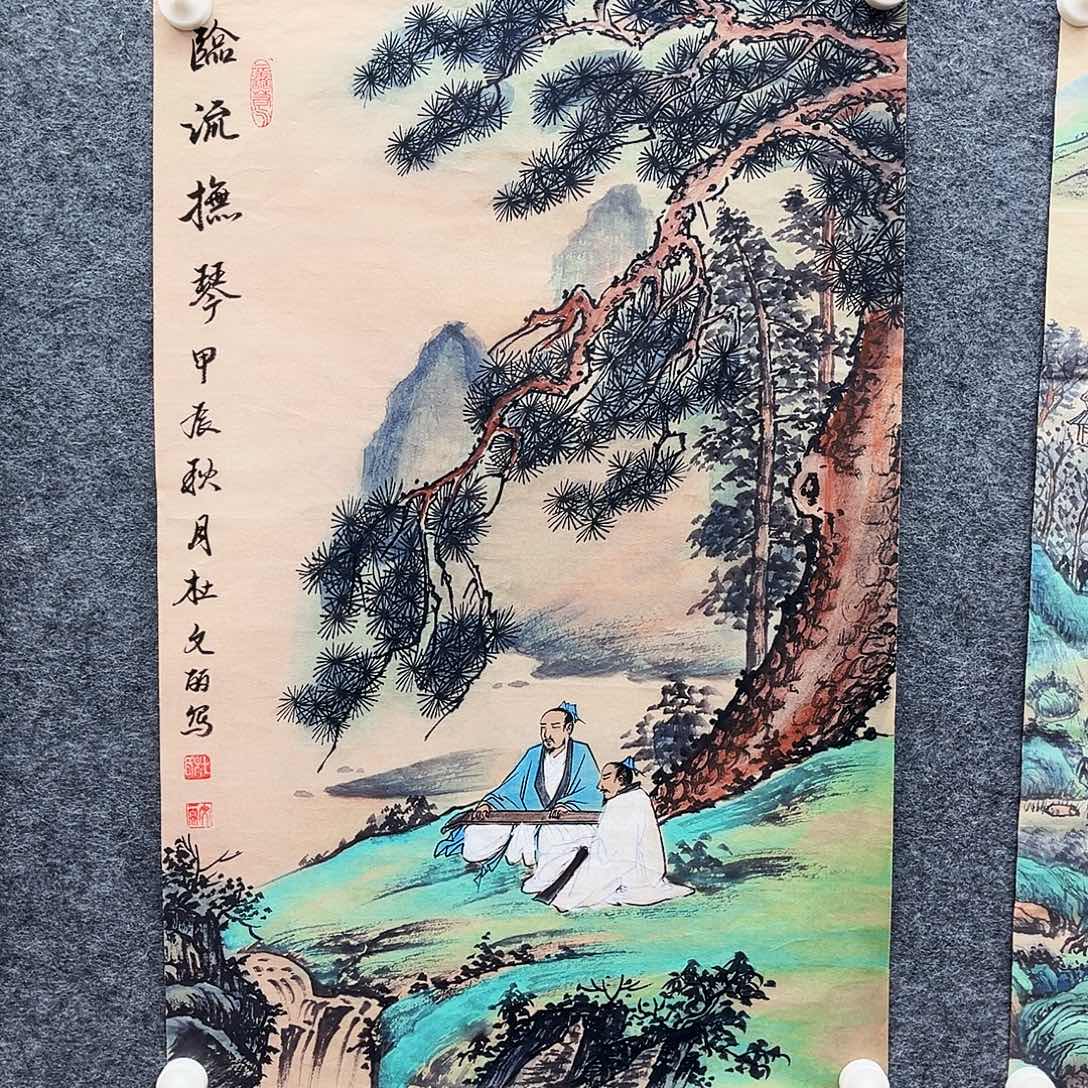 臨流撫琴甲辰秋月杜文丽写